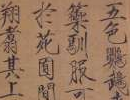 五色鸚鵡
籞馴服可
於苑囿間
翔翥其上